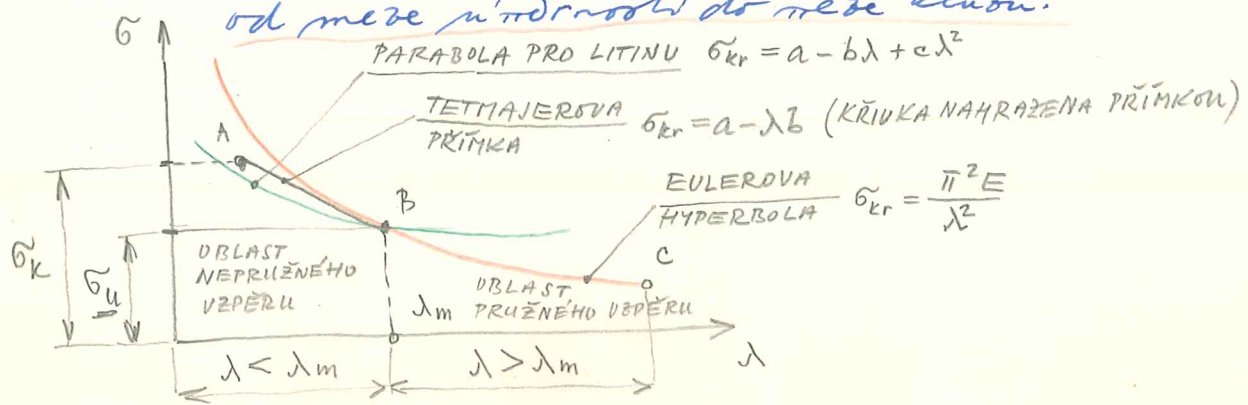 od meze úměrnosti do meze kluzu.
σ
PARABOLA PRO LITINU σkr = a - bλ + cλ²
TETMAJEROVA PŘÍMKA σkr = a - λb (KŘIVKA NAHRAZENA PŘÍMKOU)
A
EULEROVA HYPERBOLA σkr = π²E / λ²
B
C
σK
σu
OBLAST
NEPRUŽNÉHO
VZPĚRU
λm
OBLAST
PRUŽNÉHO VZPĚRU
λ
λ < λm
λ > λm